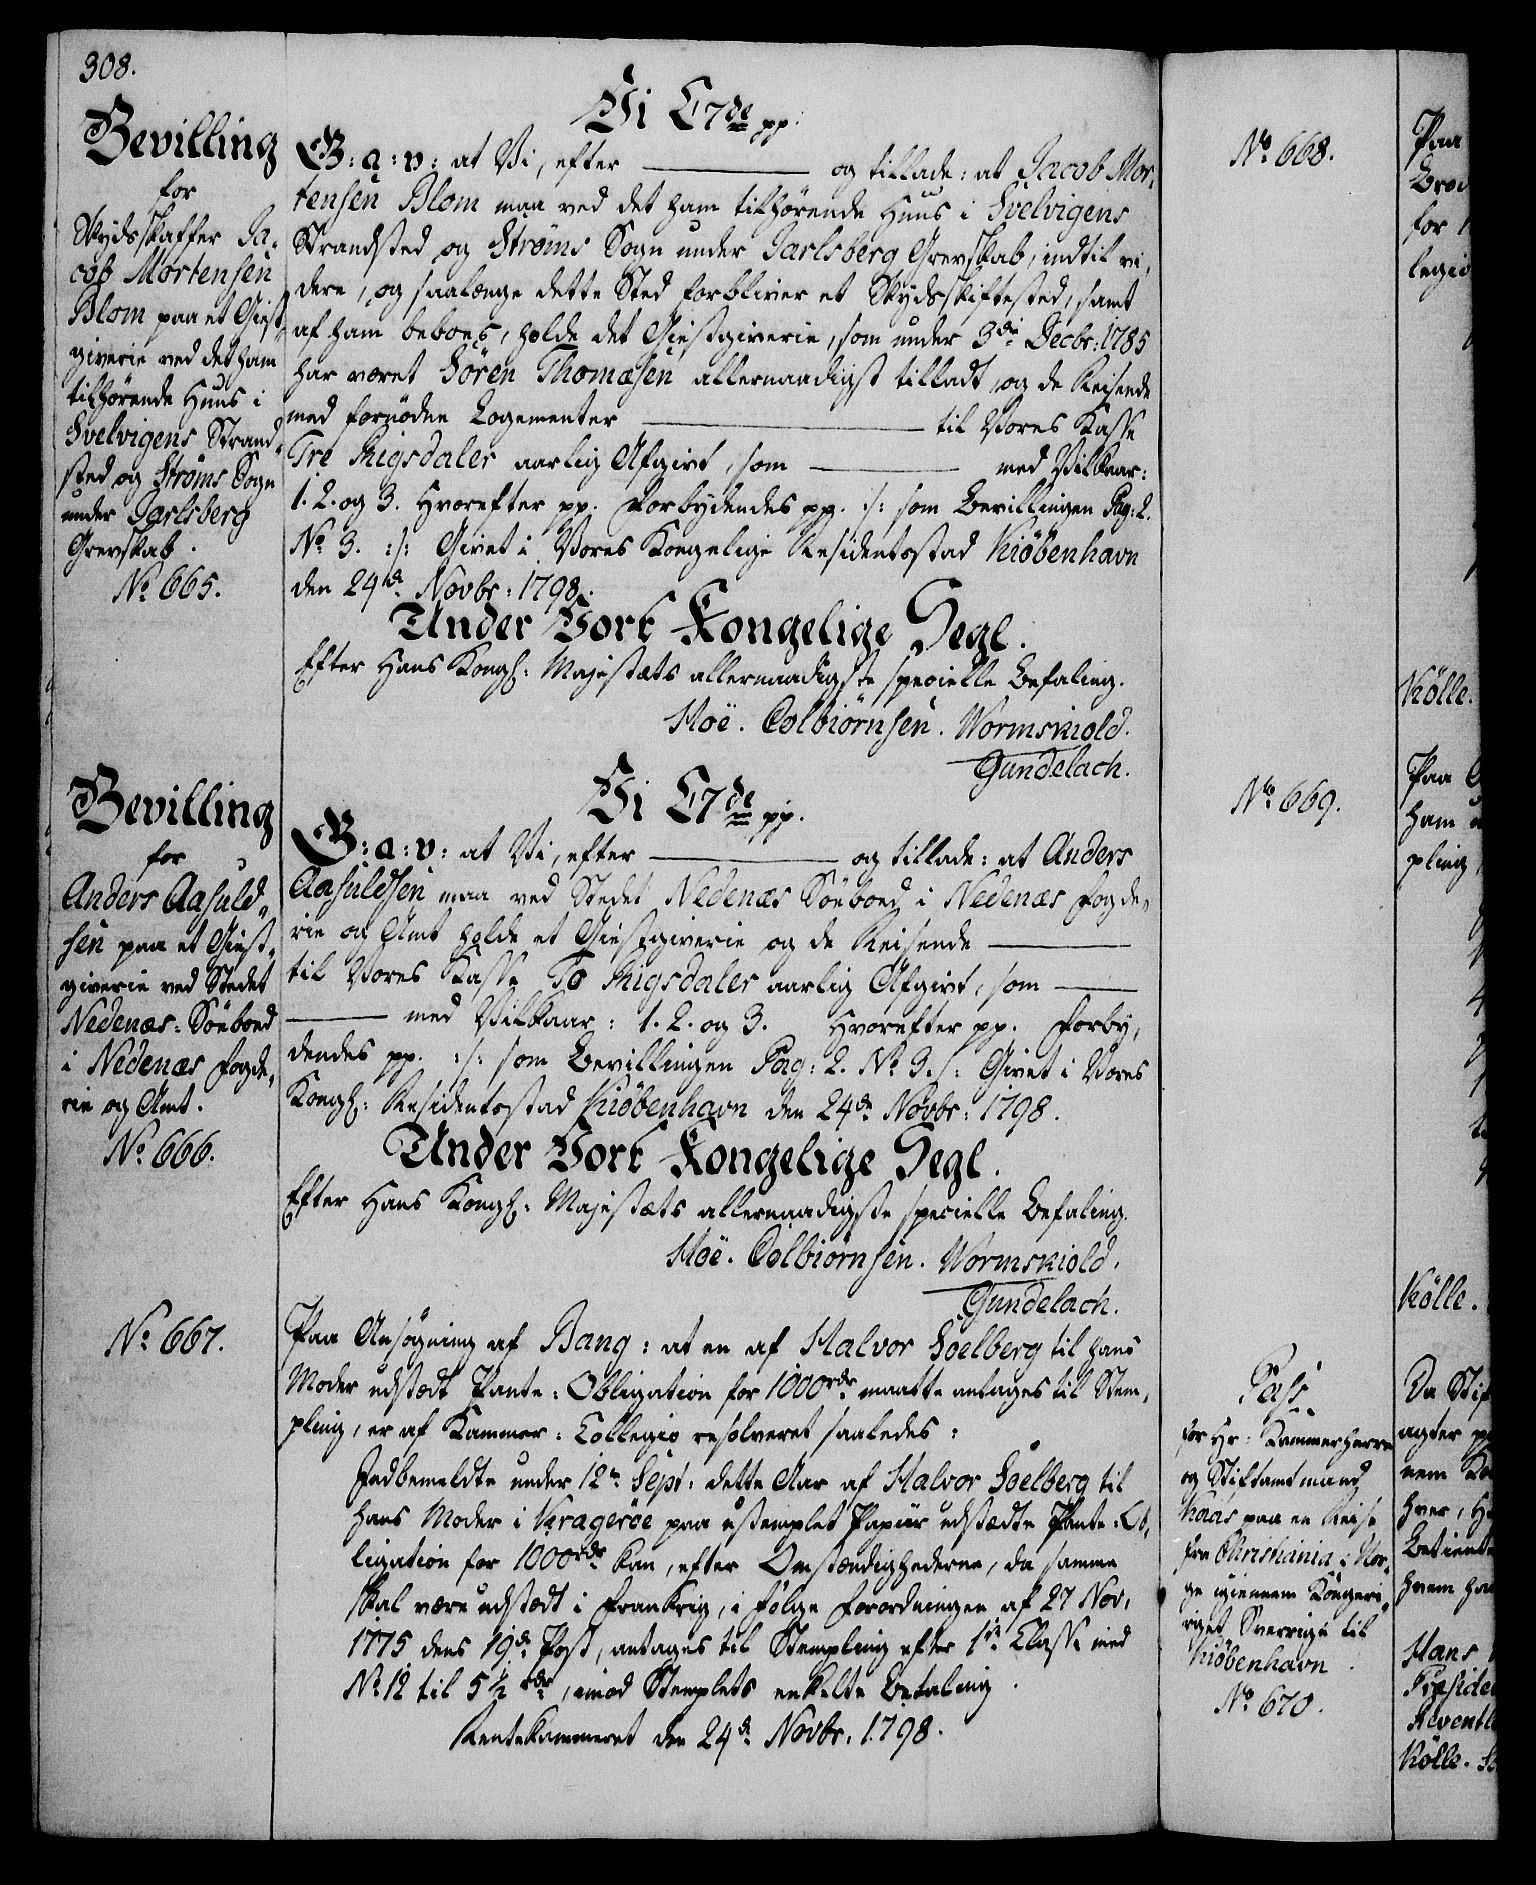 308.
Bevilling
for
Skydsskaffer Ja-
cob Mortensen
Blom paa et Giest-
giverie ved det ham
tilhørende Huus i
Svelvigens Strand-
sted og Strøms Sogn
under Jarlsberg
Grevskab.
No 665.
Vi C7de pp.
G: a: v: at Vi, efter ——— og tillade: at Jacob Mor-
tensen Blom maa ved det ham tilhørende Huus i Svelvigens
Strandsted og Strøms Sogn under Jarlsberg Grevskab, indtil vi-
dere, og saalænge dette Sted forbliver et Skydsskiftested, samt
af ham beboes, holde det Giestgiverie, som under 3de Decbr: 1785
har været Sören Thomæsen allernaadigst tilladt, og de Reisende
med fornödne Logementer ——— til Vores Kasse
Tre Rigsdaler aarlig Afgivt, som ——— med Vilkaar:
1. 2. og 3. Hvorefter pp. Forbydendes pp. :/: som Bevillingen Pag: 2.
No 3. :/: Givet i Vores Kongelige Residentsstad Kiöbenhavn
den 24de Novbr: 1798.
Under Vort Kongelige Segl.
Efter Hans Kongl: Majestæts allernaadigste specielle Befaling.
Hoë. Colbiörnsen. Wormskiold.
Gundelach.
Bevilling
for
Anders Aasuld-
sen paa et Giest-
giverie ved Stedet
Nedenæs Söeboed
i Nedenæs Fogde-
rie og Amt.
No 666.
Vi C7de pp.
G: a: v: at Vi, efter ——— og tillade: at Anders
Aasuldsen maa ved Stedet Nedenæs Söeboed i Nedenæs Fogde-
rie og Amt holde et Giestgiverie og de Reisende ———
til Vores Kasse To Rigsdaler aarlig Afgivt, som ———
——— med Vilkaar: 1. 2. og 3. Hvorefter pp. Forby-
dendes pp. :/: som Bevillingen Pag: 2. No 3. /: Givet i Vores
Kongl: Residentsstad Kiöbenhavn den 24de Novbr: 1798.
Under Vort Kongelige Segl.
Efter Hans Kongl: Majestæts allernaadigste specielle Befaling.
Hoë. Colbiörnsen. Wormskiold.
Gundelach.
No 667.
Paa Ansögning af Bang: at en af Halvor Soelberg til hans
Moder udstædt Pante-Obligation for 1000rdr maatte antages til Stem-
pling, er af Kammer-Collegio resolveret saaledes:
Indbemeldte under 12te Sept: dette Aar af Halvor Soelberg til
hans Moder i Kragerøe paa ustemplet Papiir udstædte Pante-Ob-
ligation for 1000rdr kan, efter Omstændighederne, da samme
skal være udstædt i Frankrig, i Fölge Forordningen af 27 Nov.
1775 dens 19de Post, antages til Stempling efter 1ste Classe med
No 12 til 5½ rdr, imod Stemplets enkelte Betaling.
Rentekammeret den 24de Novbr. 1798.
No 668.
No 669.
Pass
for Hr: Kammerherre
og Stiftamtmand
Kaas paa en Reise
fra Christiania i Nor-
ge igiennem Kongeri-
riget Sverrige til
Kiöbenhavn.
No 670.
Paa
for
legio
Kölle.
Paa
ham
pling
Kölle.
Da Stif
agter pp
nem
hver, H
Betiente
hvem ha
Hans
Præside
Reventl
Kölle.